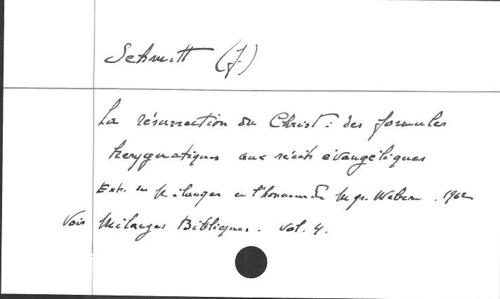 Schmitt (J)
La résurrection du Christ : des formules
kerygmatiques aux récits évangéliques
Extr. de Mélanges en l'honneur de Mgr. Weber . 1962
Voir Mélanges Bibliques . vol. 4.